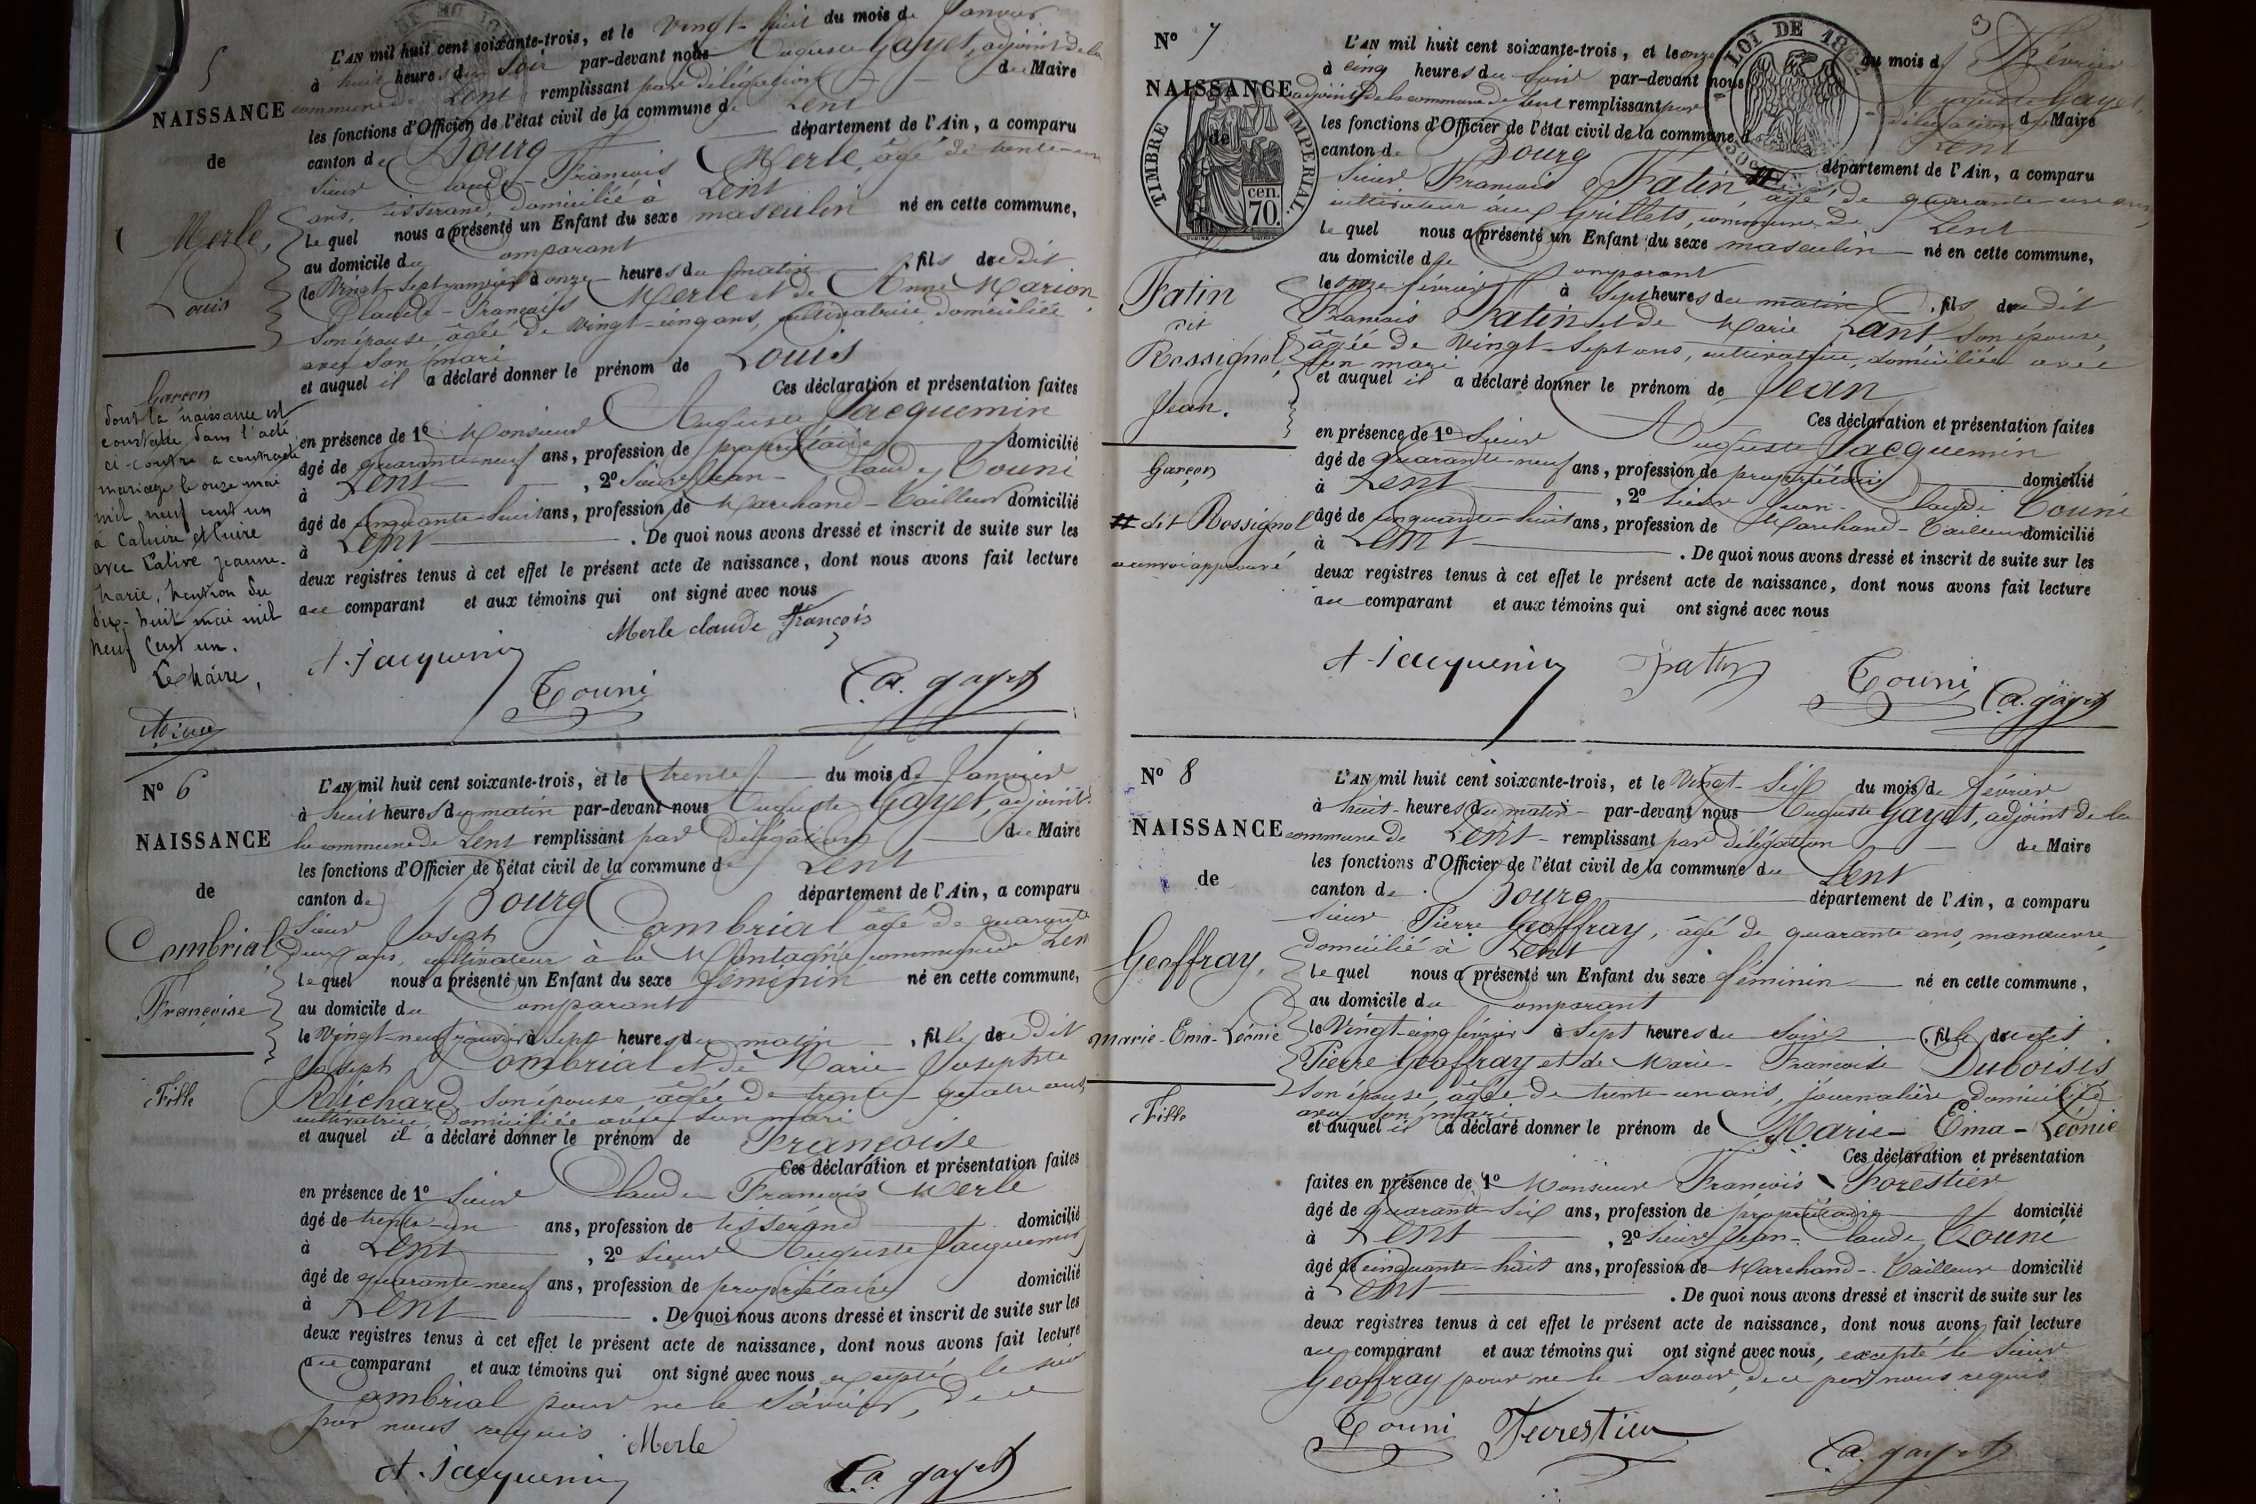 5
NAISSANCE
de
Merle,
Louis
Garçon
dont la naissance est
constatée dans l'acte
ci-contre a contracté
mariage le onze mai
mil neuf cent un
à Caluire et Cuire
avec Jeanne-
Marie, Mention du
dix-huit mai mil
neuf cent un.
Le Maire,
L'AN mil huit cent soixante-trois, et le vingt-huit du mois de Janvier
à huit heures du soir par-devant nous Auguste Gayet, adjoint de la
commune de Lent remplissant par délégation du Maire
les fonctions d'Officier de l'état civil de la commune de Lent
canton de Bourg département de l'Ain, a comparu
sieur Claude-François Merle, âgé de trente-un
ans, tisserand, domicilié à Lent
lequel nous a présenté un Enfant du sexe masculin né en cette commune,
au domicile du comparant
le Vingt-sept janvier à onze heures du matin, fils dudit
Claude-François Merle et de Anne Marion
son épouse, âgée de vingt-cinq ans, cultivatrice domiciliée
avec son mari
et auquel il a déclaré donner le prénom de Louis
Ces déclaration et présentation faites
en présence de 1º Monsieur Auguste Jacquemin
âgé de quarante-neuf ans, profession de propriétaire domicilié
à Lent, 2º sieur Jean-Claude Touni
âgé de cinquante-huit ans, profession de Marchand-Tailleur domicilié
à Lent. De quoi nous avons dressé et inscrit de suite sur les
deux registres tenus à cet effet le présent acte de naissance, dont nous avons fait lecture
au comparant et aux témoins qui ont signé avec nous
Merle claude françois
A. Jacquemin
Touni
Ca. gayet
Nº 6
NAISSANCE
de
Cambrial
Françoise
Fille
L'AN mil huit cent soixante-trois, et le trente du mois de Janvier
à huit heures du matin par-devant nous Auguste Gayet, adjoint de
la commune de Lent remplissant par délégation du Maire
les fonctions d'Officier de l'état civil de la commune de Lent
canton de Bourg département de l'Ain, a comparu
Sieur Joseph Cambrial âgé de quarante
deux ans, cultivateur à la Montagne commune de Lent
lequel nous a présenté un Enfant du sexe féminin né en cette commune,
au domicile du comparant
le Vingt-neuf janvier à sept heures du matin, fille dudit
Joseph Cambrial et de Marie Josephte
Réichard son épouse âgée de trente-quatre ans
cultivatrice, domiciliée avec son mari
et auquel il a déclaré donner le prénom de Françoise
Ces déclaration et présentation faites
en présence de 1º Sieur Claude François Merle
âgé de trente-un ans, profession de tisserand domicilié
à Lent, 2º Sieur Auguste Jacquemin
âgé de quarante-neuf ans, profession de propriétaire domicilié
à Lent. De quoi nous avons dressé et inscrit de suite sur les
deux registres tenus à cet effet le présent acte de naissance, dont nous avons fait lecture
au comparant et aux témoins qui ont signé avec nous excepté le sieur
Cambrial pour ne le savoir, de ce
par nous requis
Merle
A. Jacquemin
Ca. gayet
3
LOI DE 1862
TIMBRE IMPERIAL.
cen.
70.
Nº 7
NAISSANCE
de
Fatin
dit
Rossignol,
Jean.
Garçon
# dit Rossignol
renvoi approuvé
L'AN mil huit cent soixante-trois, et le onze du mois de Février
à cinq heures du soir par-devant nous Auguste Gayet,
adjoint de la commune de Lent remplissant par délégation du Maire
les fonctions d'Officier de l'état civil de la commune de Lent
canton de Bourg département de l'Ain, a comparu
Sieur François Fatin # âgé de quarante-un ans,
cultivateur aux Grillets, commune de Lent
lequel nous a présenté un Enfant du sexe masculin né en cette commune,
au domicile de comparant
le onze février à sept heures du matin, fils dudit
François Fatin et de Marie Lant, son épouse,
âgée de vingt-sept ans, cultivatrice, domiciliée avec
son mari
et auquel il a déclaré donner le prénom de Jean
Ces déclaration et présentation faites
en présence de 1º Sieur Auguste Jacquemin
âgé de quarante-neuf ans, profession de propriétaire domicilié
à Lent, 2º Sieur Jean-Claude Touni
âgé de cinquante-huit ans, profession de Marchand-Tailleur domicilié
à Lent. De quoi nous avons dressé et inscrit de suite sur les
deux registres tenus à cet effet le présent acte de naissance, dont nous avons fait lecture
au comparant et aux témoins qui ont signé avec nous
A. Jacquemin
Fatin
Touni
Ca. gayet
Nº 8
NAISSANCE
de
Geoffray,
Marie-Ema-Léonie
Fille
L'AN mil huit cent soixante-trois, et le Vingt-Six du mois de février
à huit heures du matin par-devant nous Auguste Gayet, adjoint de la
commune de Lent remplissant par délégation de Maire
les fonctions d'Officier de l'état civil de la commune de Lent
canton de Bourg département de l'Ain, a comparu
Sieur Pierre Geoffray, âgé de quarante ans, manœuvre,
domicilié à Lent
lequel nous a présenté un Enfant du sexe féminin né en cette commune,
au domicile du comparant
le Vingt-cinq février à sept heures du soir, fille dudit
Pierre Geoffray et de Marie-Françoise Duboisis
son épouse, âgée de trente-un ans, journalière domiciliée
avec son mari
et auquel il a déclaré donner le prénom de Marie-Ema-Léonie
Ces déclaration et présentation
faites en présence de 1º Monsieur François Forestier
âgé de quarante-six ans, profession de propriétaire domicilié
à Lent, 2º Sieur Jean-Claude Touni
âgé de cinquante-huit ans, profession de Marchand-Tailleur domicilié
à Lent. De quoi nous avons dressé et inscrit de suite sur les
deux registres tenus à cet effet le présent acte de naissance, dont nous avons fait lecture
au comparant et aux témoins qui ont signé avec nous, excepté le Sieur
Geoffray pour ne le savoir, de ce par nous requis
Touni
Forestier
Ca. gayet